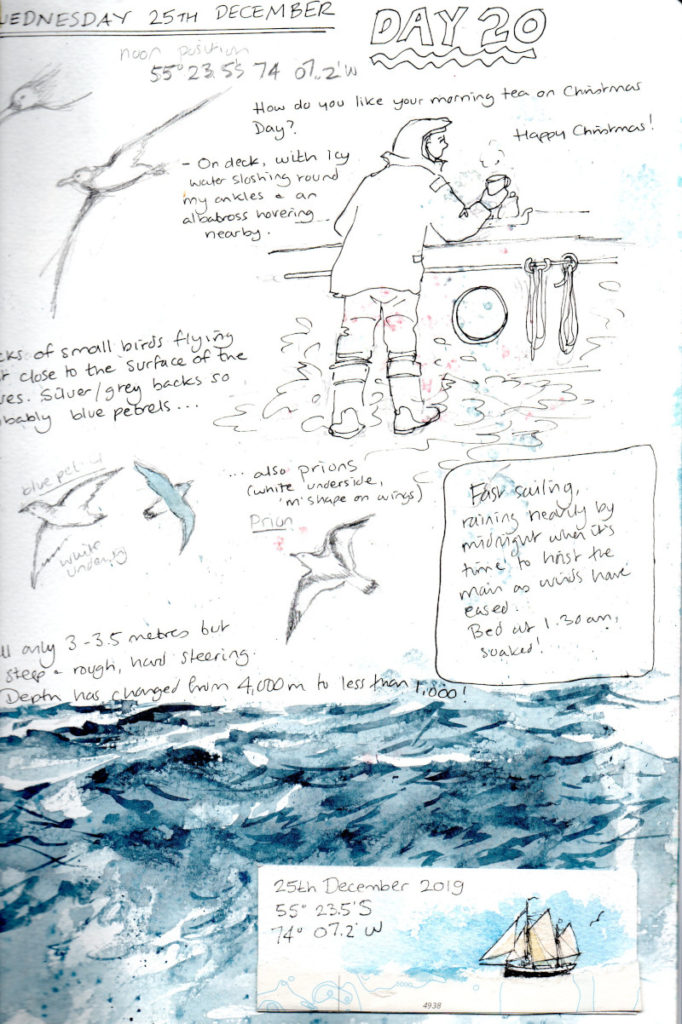 WEDNESDAY 25TH DECEMBER
DAY 20
noon position
55° 23.5'S 74 07.2'W
How do you like your morning tea on Christmas
Day?
Happy Christmas!
- On deck, with icy
water sloshing round
my ankles & an
albatross hovering
nearby.
cks of small birds flying
r close to the surface of the
ves. Silver/grey backs so
obably blue petrels...
blue petrel
white
underwing
... also prions
(white underside,
'm' shape on wings)
Prion
Fast sailing,
raining heavily by
midnight when it's
time to hoist the
main as winds have
eased.
Bed at 1.30am,
soaked!
ll only 3-3.5 metres but
steep & rough, hard steering.
Depth has changed from 4,000m to less than 1,000!
25th December 2019
55° 23.5'S
74° 07.2'W
4938